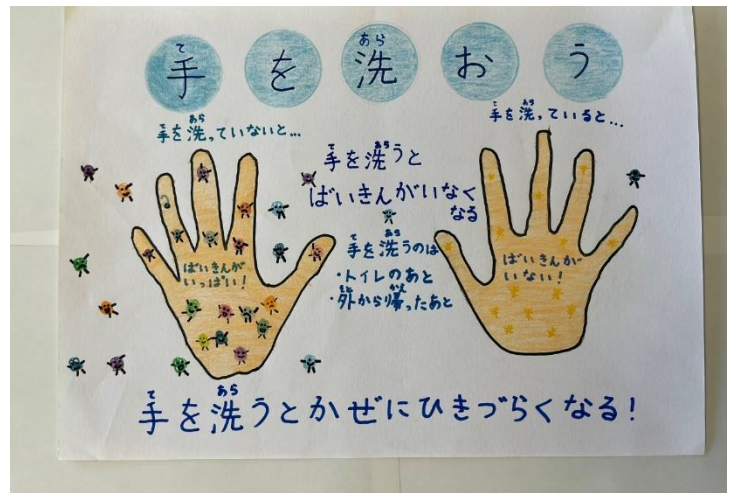 手を洗おう
手を洗っていないと...
手を洗っていると...
手を洗うと
ばいきんがいなく
なる
手を洗うのは
・トイレのあと
・外から帰ったあと
ばいきんが
いっぱい!
ばいきんが
いない!
手を洗うとかぜにひきづらくなる!